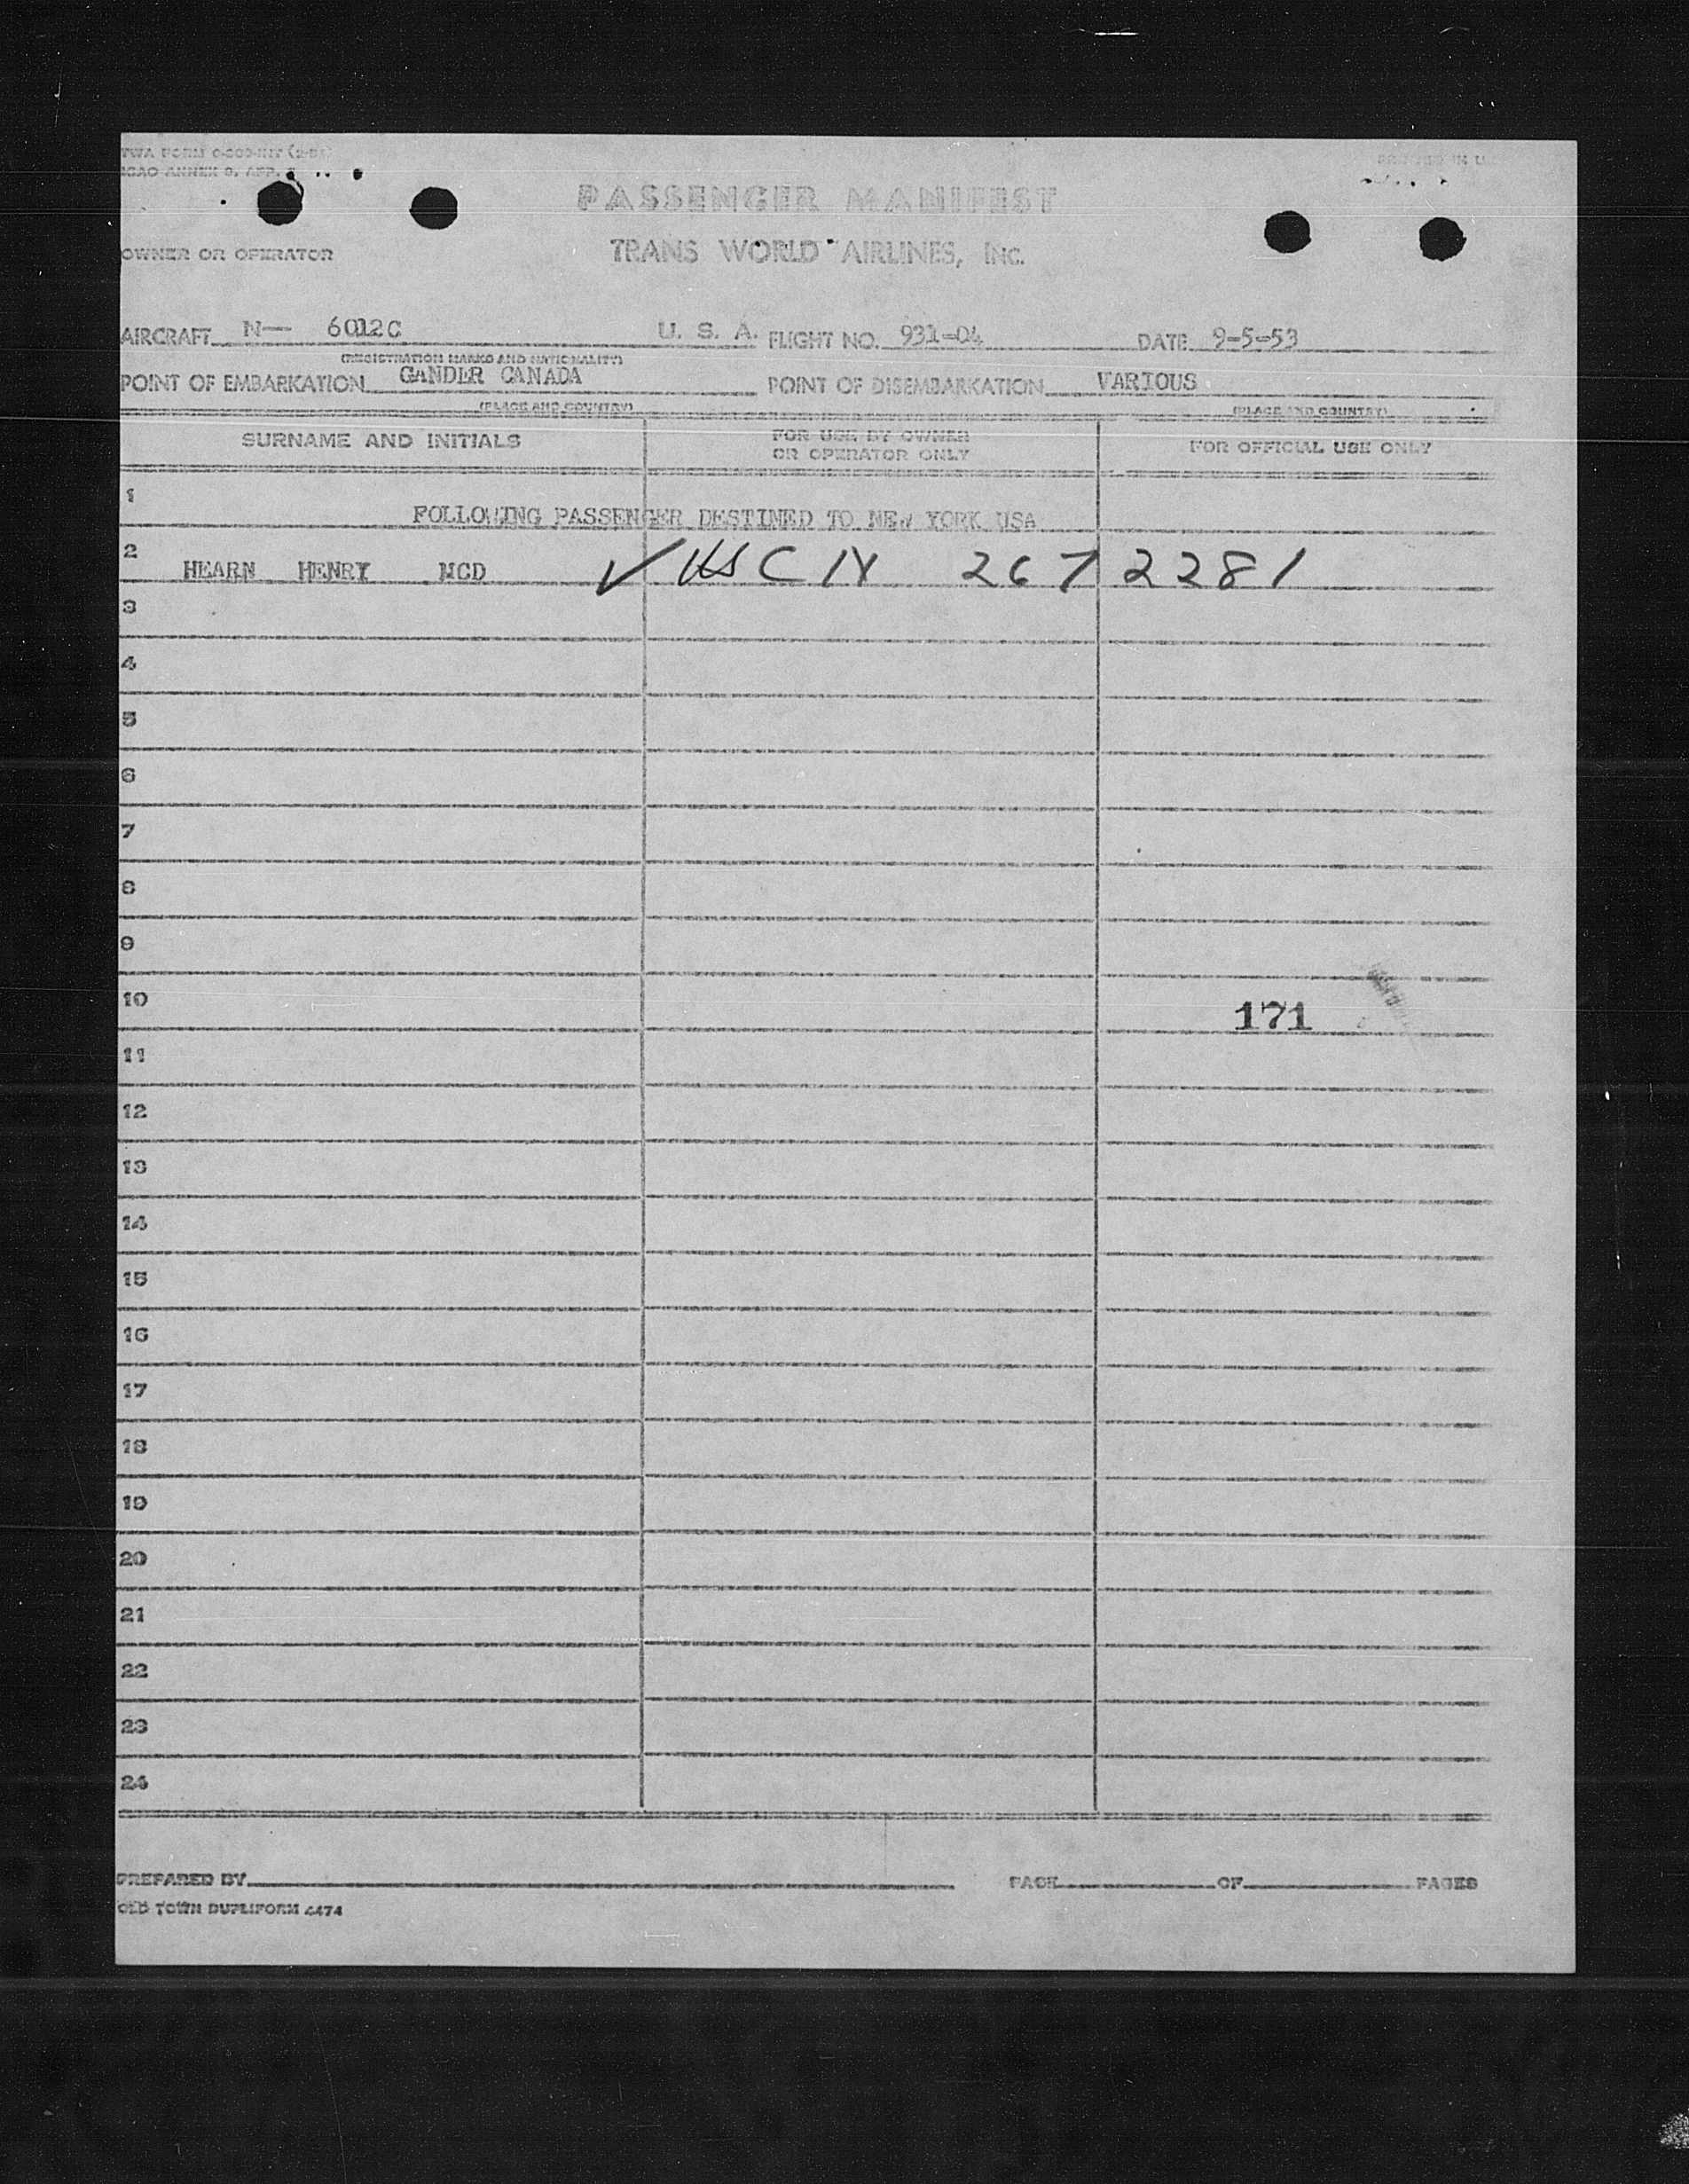 ICAO ANNEX 9, APP.
PRINTED IN U.
PASSENGER MANIFEST
OWNER OR OPERATOR TRANS WORLD AIRLINES, INC.
AIRCRAFT N— 6012C U. S. A. FLIGHT NO. 931-04 DATE 9-5-53
(REGISTRATION MARKS AND NATIONALITY)
POINT OF EMBARKATION GANDER CANADA POINT OF DISEMBARKATION VARIOUS
(PLACE AND COUNTRY) (PLACE AND COUNTRY)
SURNAME AND INITIALS FOR USE BY OWNER OR OPERATOR ONLY FOR OFFICIAL USE ONLY
1 FOLLOWING PASSENGER DESTINED TO NEW YORK USA
2 HEARN HENRY MCD ✓ USC IN 267 2281
3
4
5
6
7
8
9
10 171
11
12
13
14
15
16
17
18
19
20
21
22
23
24
PREPARED BY PAGE OF PAGES
OLD TOWN DUPLIFORM 4474